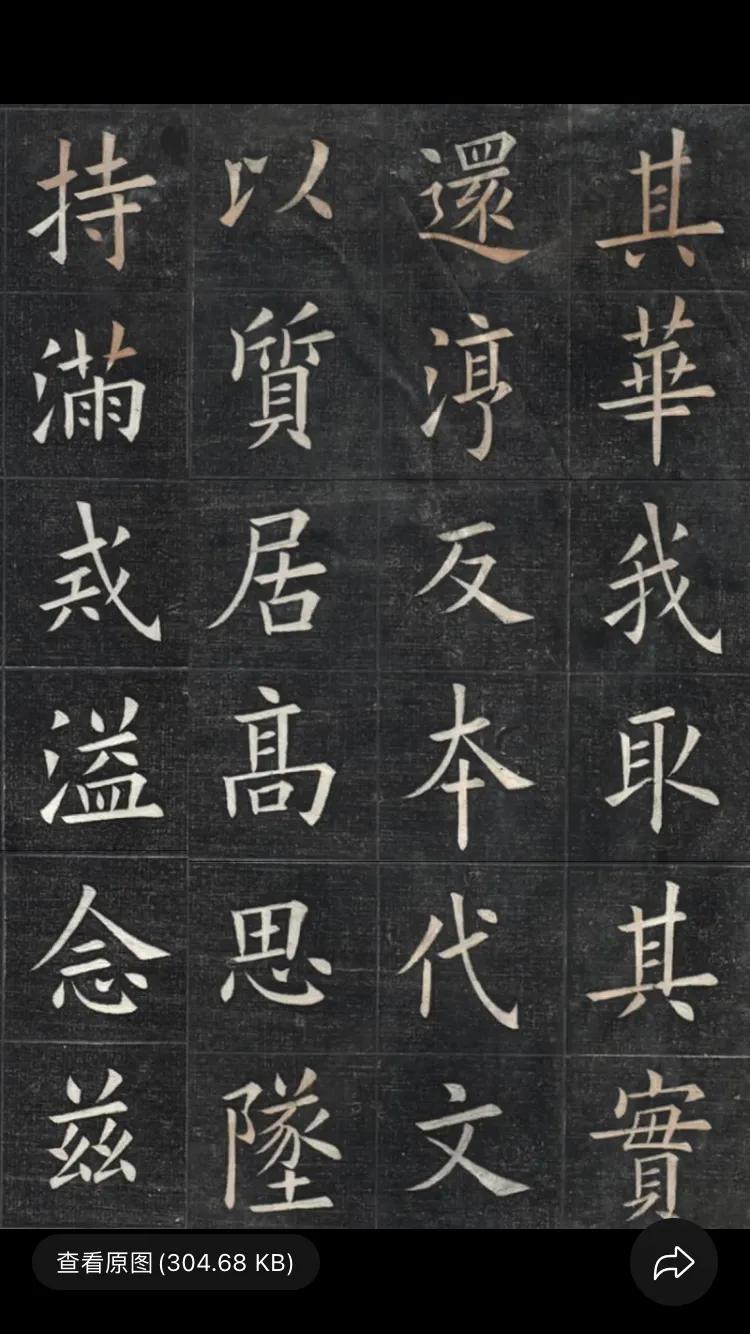 其華我取其實
還淳反本代文
以質居高思墜
持滿戒溢念茲
查看原图(304.68 KB)